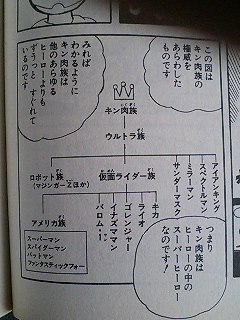 この図は
キン肉族の
権威を
あらわした
ものです
みれば
わかるように
キン肉族は
他のあらゆる
ヒーローよりも
ずうっと すぐれて
いるのです
キン肉族
ウルトラ族
ロボット族
(マジンガーZほか)
仮面ライダー族
アイアンキング
スペクトルマン
ミラーマン
サンダーマスク
キカイダー
ライオン丸
ゴレンジャー
イナズマン
バロム・1
アメリカ族
スーパーマン
スパイダーマン
バットマン
ファンタスティックフォー
つまり
キン肉族は
ヒーローの中の
スーパーヒーロー
なのです!